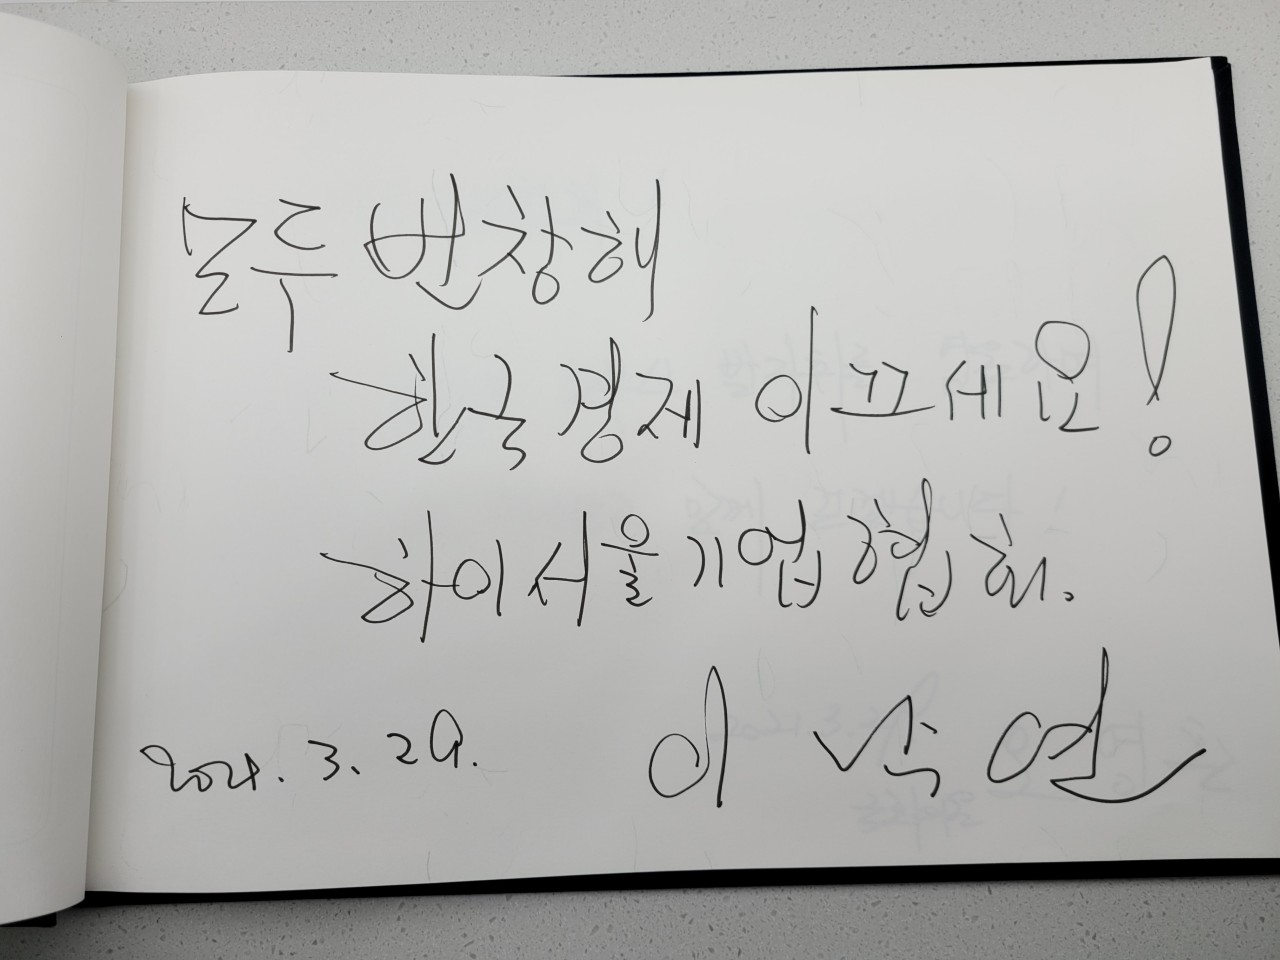 모두 번창해
한국경제 이끄세요!
하이서울기업협회.
2021. 3. 29. 이낙연